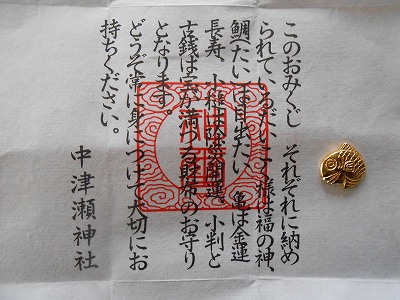 このおみくじ　それぞれに納め
られているだいこく様は福の神、
鯛(たい)は目出たい　亀は金運
長寿、小槌は開運、小判と
古銭は宝が満つる財布のお守り
となります。
どうぞ常に身につけて大切にお
持ちください。
中津瀬神社